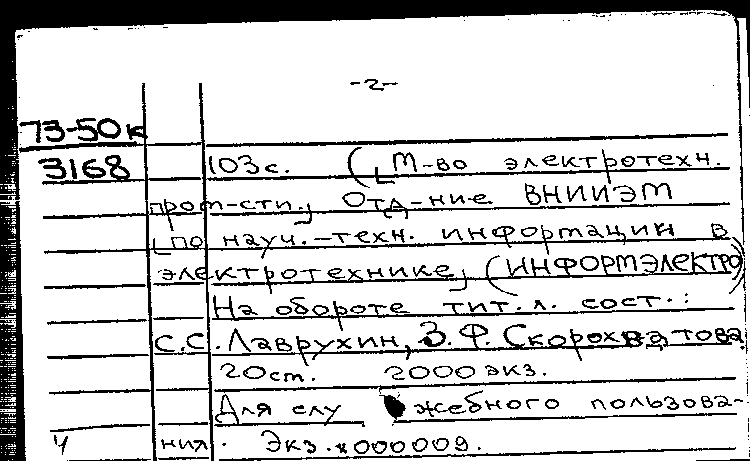 -2-
73-50к
3168 103с. (М-во электротехн.
пром-сти., Отд-ние ВНИИЭМ
по науч.-техн. информации в
электротехнике, (ИНФОРМЭЛЕКТРО)
На обороте тит. л. сост.:
С.С. Лаврухин, З.Ф. Скорохватова
20ст. 2000 экз.
Для слу жебного пользова-
ч ния. Экз. №000009.